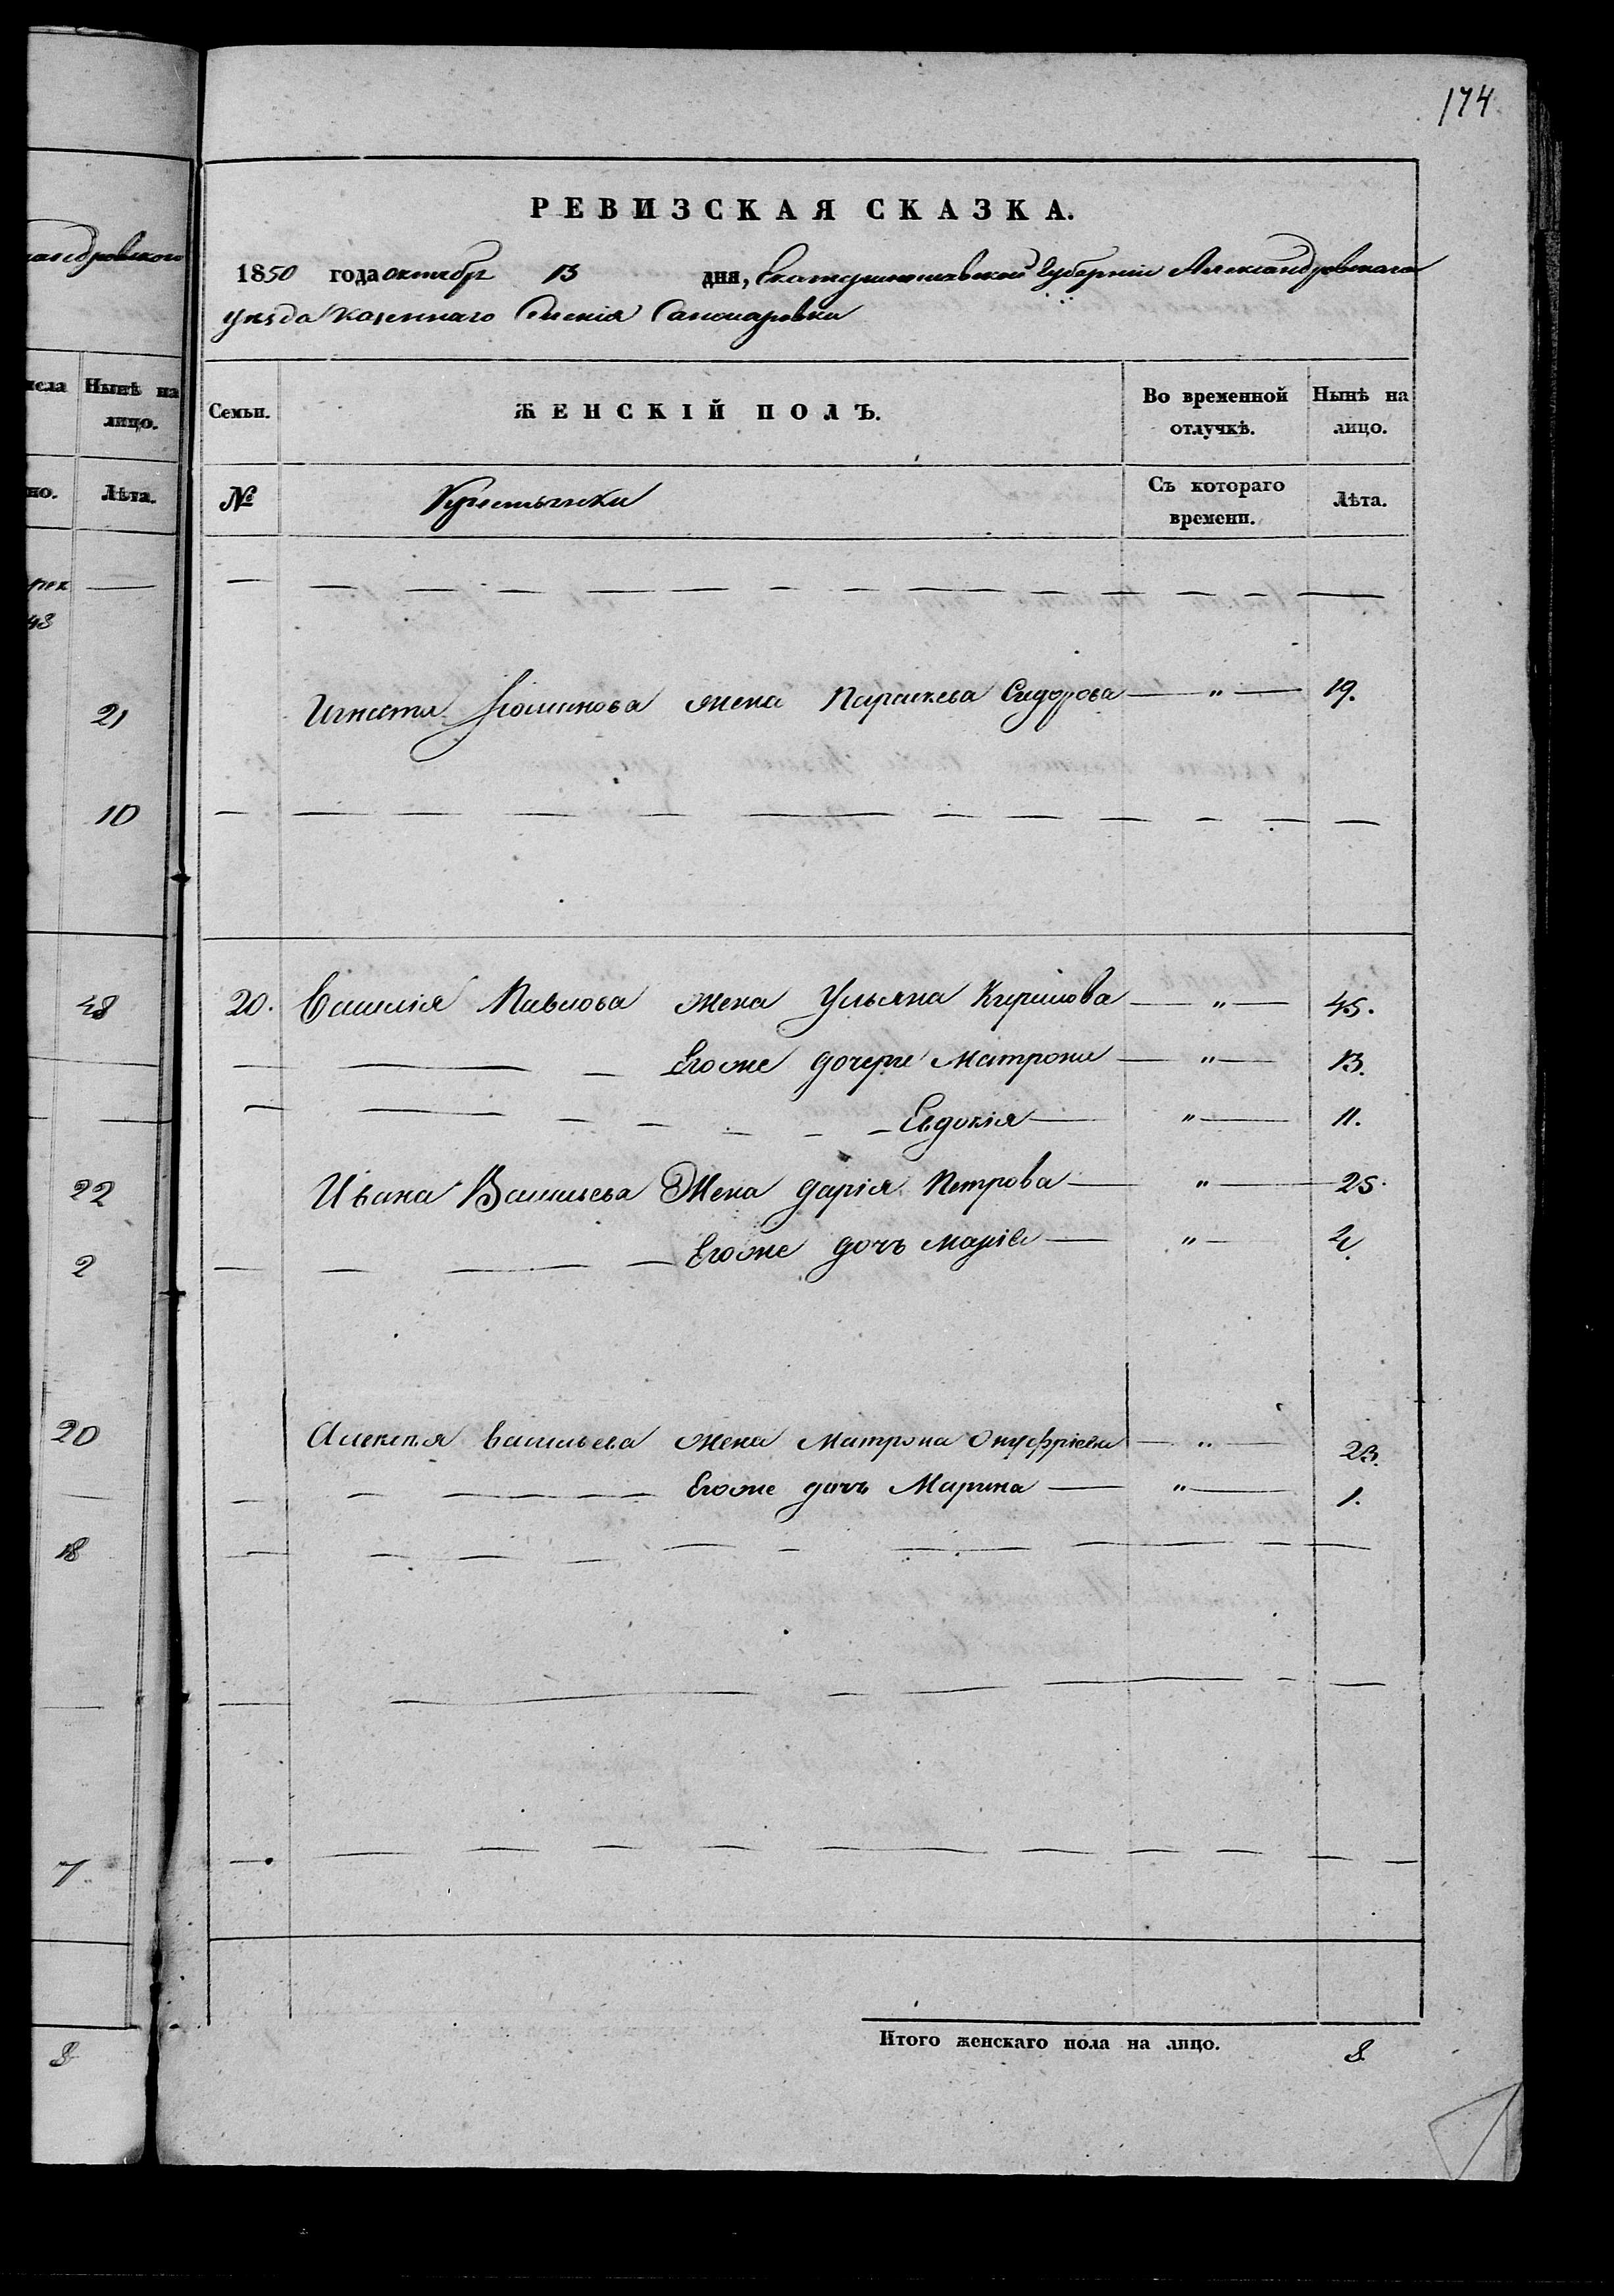 174
РЕВИЗСКАЯ СКАЗКА.
1850 года октября 13 дня, Екатеринославской Губерніи Александровскаго
уезда Казеннаго Селенія
Семьи. ЖЕНСКІЙ ПОЛЪ. Во временной отлучкѣ. Нынѣ на лицо.
№ Крестьянки Съ котораго времени. Лѣта.
Игната жена Параскева Сидорова — " — 19.
20. Василія Павлова жена Ульяна Кирилова — " — 45.
Егоже дочери Матрона — " — 13.
Евдокія — " — 11.
Ивана Васильева Жена Дарія Петрова — " — 25.
Егоже дочь Марія — " —
Алексея Васильева жена Матрона Онуфріева — " — 23.
Егоже дочь Марина — " — 1.
Итого женскаго пола на лицо. 8.
андровского
исла Нынѣ на лицо.
но. Лѣта.
48
21
10
48
22
2
20
18
7
8